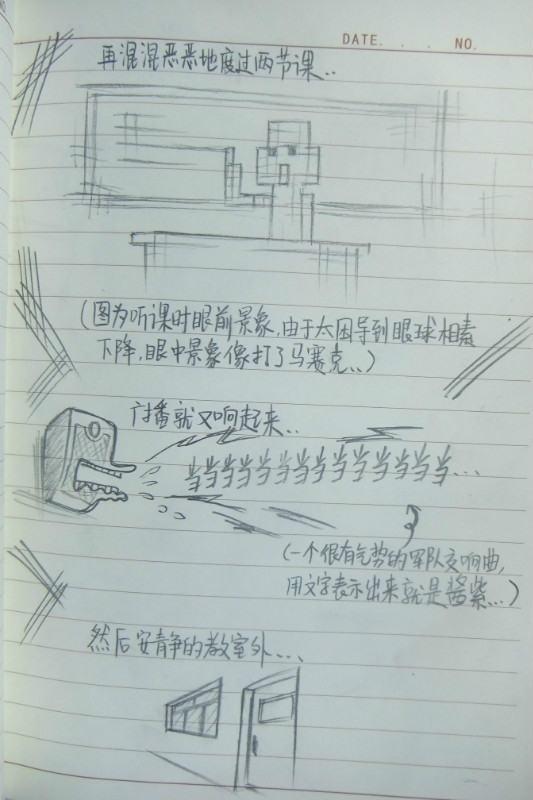 DATE. . . NO.
再混混恶恶地度过两节课..
(图为听课时眼前景象,由于太困导到眼球相素
下降,眼中景象像打了马赛克...)
广播就又响起来..
当当当当当当当当当当当当当当当...
(一个很有气势的军队交响曲,
用文字表示出来就是酱紫...)
然后安静的教室外...